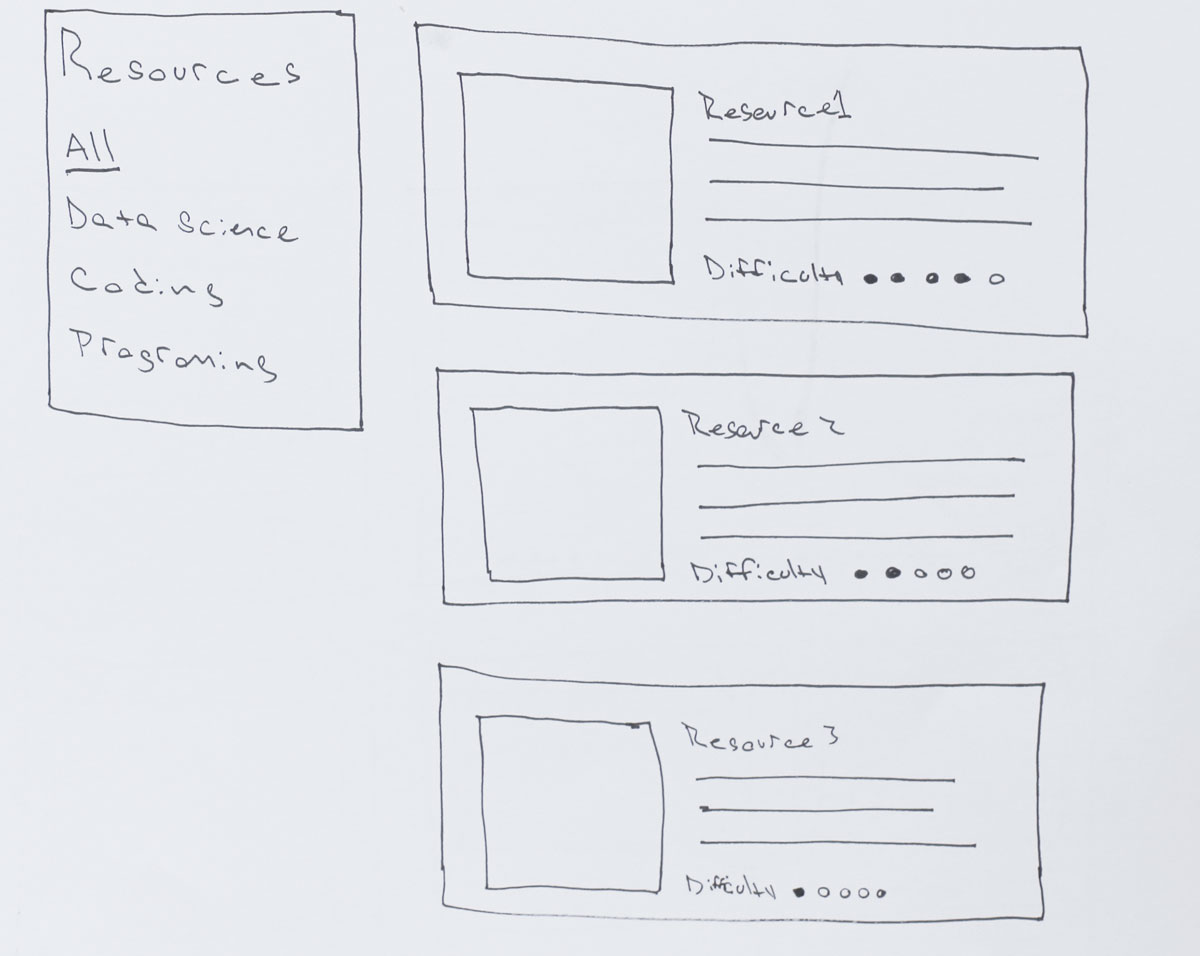 Resources
All
Data Science
Coding
Programing
Resource1
Difficulty
Resource 2
Difficulty
Resource 3
Difficulty